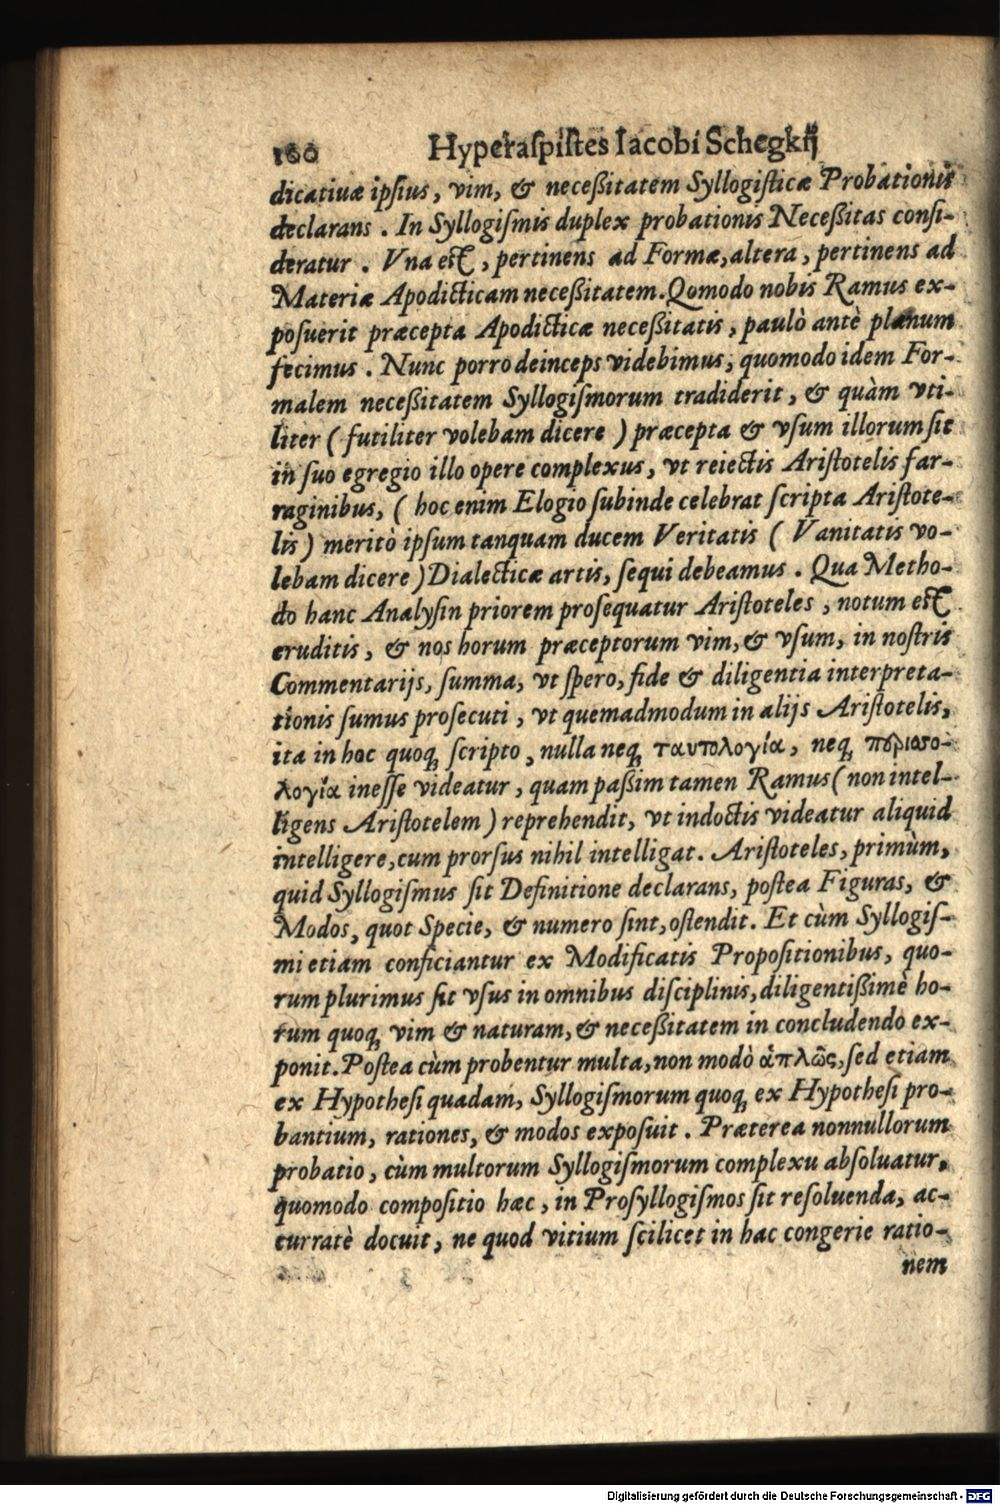 160 Hyperaſpiſtes Iacobi Schegkij
dicatiuæ ipſius, vim, & neceßitatem Syllogiſticæ Probationis
declarans. In Syllogiſmis duplex probationis Neceßitas conſi-
deratur. Vna eſt, pertinens ad Formæ, altera, pertinens ad
Materiæ Apodicticam neceßitatem. Qomodo nobis Ramus ex-
poſuerit præcepta Apodicticæ neceßitatis, paulò antè planum
fecimus. Nunc porro deinceps videbimus, quomodo idem For-
malem neceßitatem Syllogiſmorum tradiderit, & quàm vti-
liter (futiliter volebam dicere) præcepta & vſum illorum ſit
in ſuo egregio illo opere complexus, vt reiectis Ariſtotelis far-
raginibus, (hoc enim Elogio ſubinde celebrat ſcripta Ariſtote-
lis) meritò ipſum tanquam ducem Veritatis (Vanitatis vo-
lebam dicere) Dialecticæ artis, ſequi debeamus. Qua Metho-
do hanc Analyſin priorem proſequatur Ariſtoteles, notum eſt
eruditis, & nos horum præceptorum vim, & vſum, in noſtris
Commentarijs, ſumma, vt ſpero, fide & diligentia interpreta-
tionis ſumus proſecuti, vt quemadmodum in alijs Ariſtotelis,
ita in hoc quoq; ſcripto, nulla neq; ταυτολογία, neq; περισσο-
λογία ineſſe videatur, quam paßim tamen Ramus (non intel-
ligens Ariſtotelem) reprehendit, vt indoctis videatur aliquid
intelligere, cum prorſus nihil intelligat. Ariſtoteles, primùm,
quid Syllogiſmus ſit Definitione declarans, poſtea Figuras, &
Modos, quot Specie, & numero ſint, oſtendit. Et cùm Syllogiſ-
mi etiam conficiantur ex Modificatis Propoſitionibus, quo-
rum plurimus ſit vſus in omnibus diſciplinis, diligentißimè ho-
rum quoq; vim & naturam, & neceßitatem in concludendo ex-
ponit. Poſtea cùm probentur multa, non modò ἁπλῶς, ſed etiam
ex Hypotheſi quadam, Syllogiſmorum quoq; ex Hypotheſi pro-
bantium, rationes, & modos expoſuit. Præterea nonnullorum
probatio, cùm multorum Syllogiſmorum complexu abſoluatur,
quomodo compoſitio hæc, in Proſyllogiſmos ſit reſoluenda, ac-
curratè docuit, ne quod vitium ſcilicet in hac congerie ratio-
nem
Digitalisierung gefördert durch die Deutsche Forschungsgemeinschaft - DFG